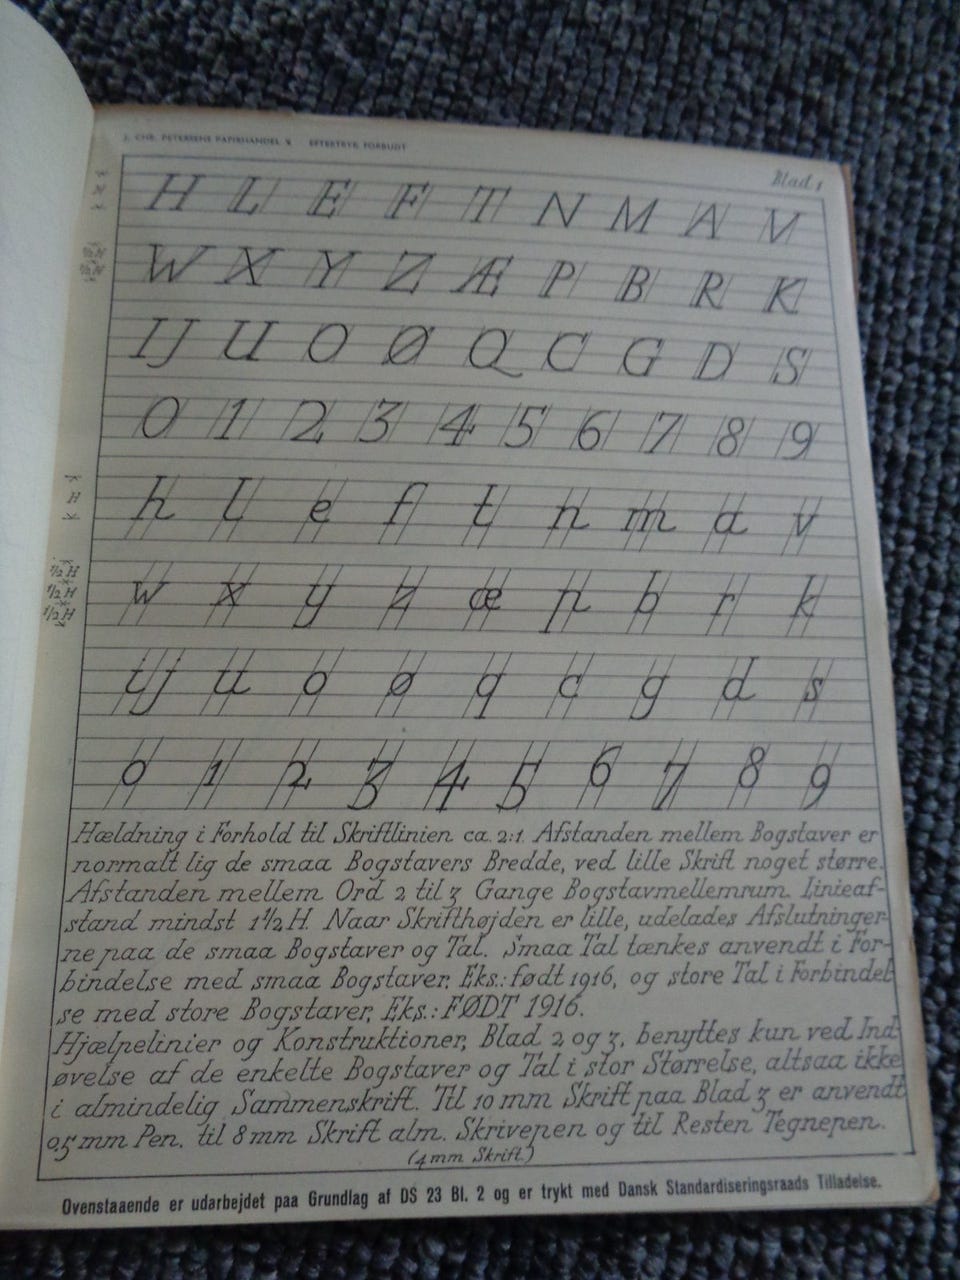 J. CHR. PETERSENS PAPIRHANDEL % EFTERTRYK FORBUDT
Blad 1
H L E F T N M A V
½H
½H
W X Y Z Æ P B R K
IJ U O Ø Q C G D S
0 1 2 3 4 5 6 7 8 9
H
h l e f t n m a v
½H
½H
½H
w x y z æ p b r k
ij u o ø q c g d s
0 1 2 3 4 5 6 7 8 9
Hældning i Forhold til Skriftlinien ca. 2:1. Afstanden mellem Bogstaver er
normalt lig de smaa Bogstavers Bredde, ved lille Skrift noget større.
Afstanden mellem Ord 2 til 3 Gange Bogstavmellemrum. Linieaf-
stand mindst 1½H. Naar Skrifthøjden er lille, udelades Afslutninger-
ne paa de smaa Bogstaver og Tal. Smaa Tal tænkes anvendt i For-
bindelse med smaa Bogstaver, Eks.: født 1916, og store Tal i Forbindel
se med store Bogstaver, Eks.: FØDT 1916.
Hjælpelinier og Konstruktioner, Blad 2 og 3, benyttes kun ved Ind-
øvelse af de enkelte Bogstaver og Tal i stor Størrelse, altsaa ikke
i almindelig Sammenskrift. Til 10 mm Skrift paa Blad 3 er anvendt
0.5 mm Pen. til 8 mm Skrift alm. Skrivepen og til Resten Tegnepen.
(4 mm Skrift.)
Ovenstaaende er udarbejdet paa Grundlag af DS 23 Bl. 2 og er trykt med Dansk Standardiseringsraads Tilladelse.